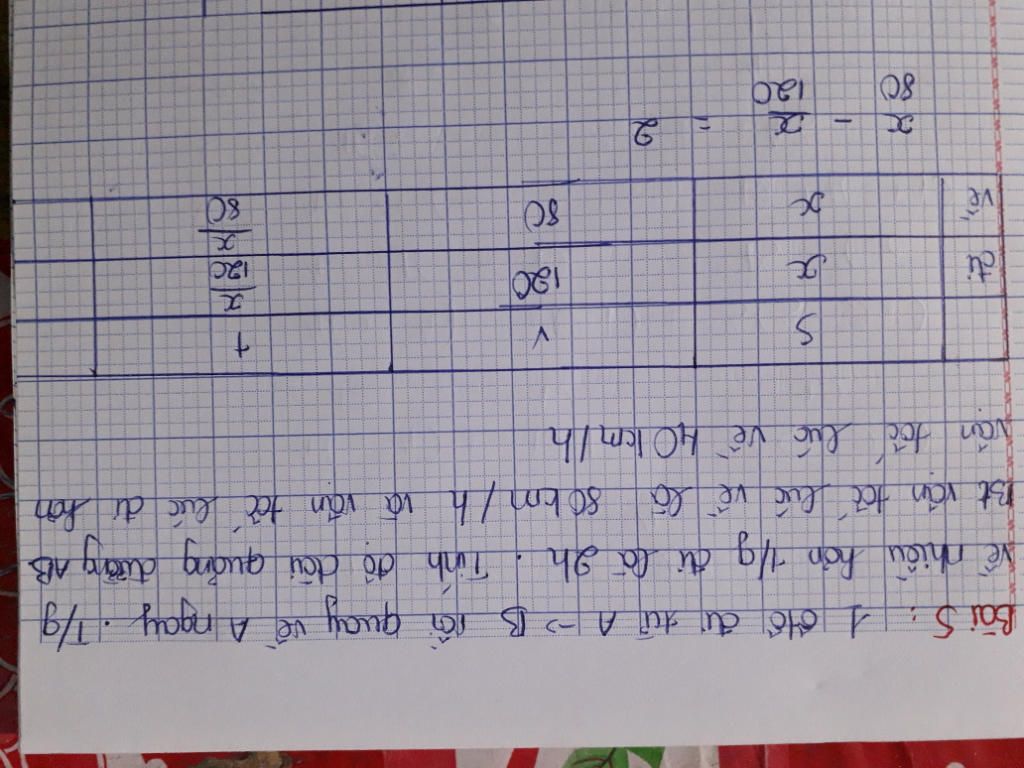 Bài 5: 1 ôtô đi từ A → B rồi quay về A ngay. T/g
về nhiều hơn T/g đi là 2h. Tính độ dài quãng đường AB
Bt vận tốc lúc về là 80km/h và vận tốc lúc đi hơn
vận tốc lúc về 40km/h
S v t
đi x 120 x/120
về x 80 x/80
x/80 - x/120 = 2